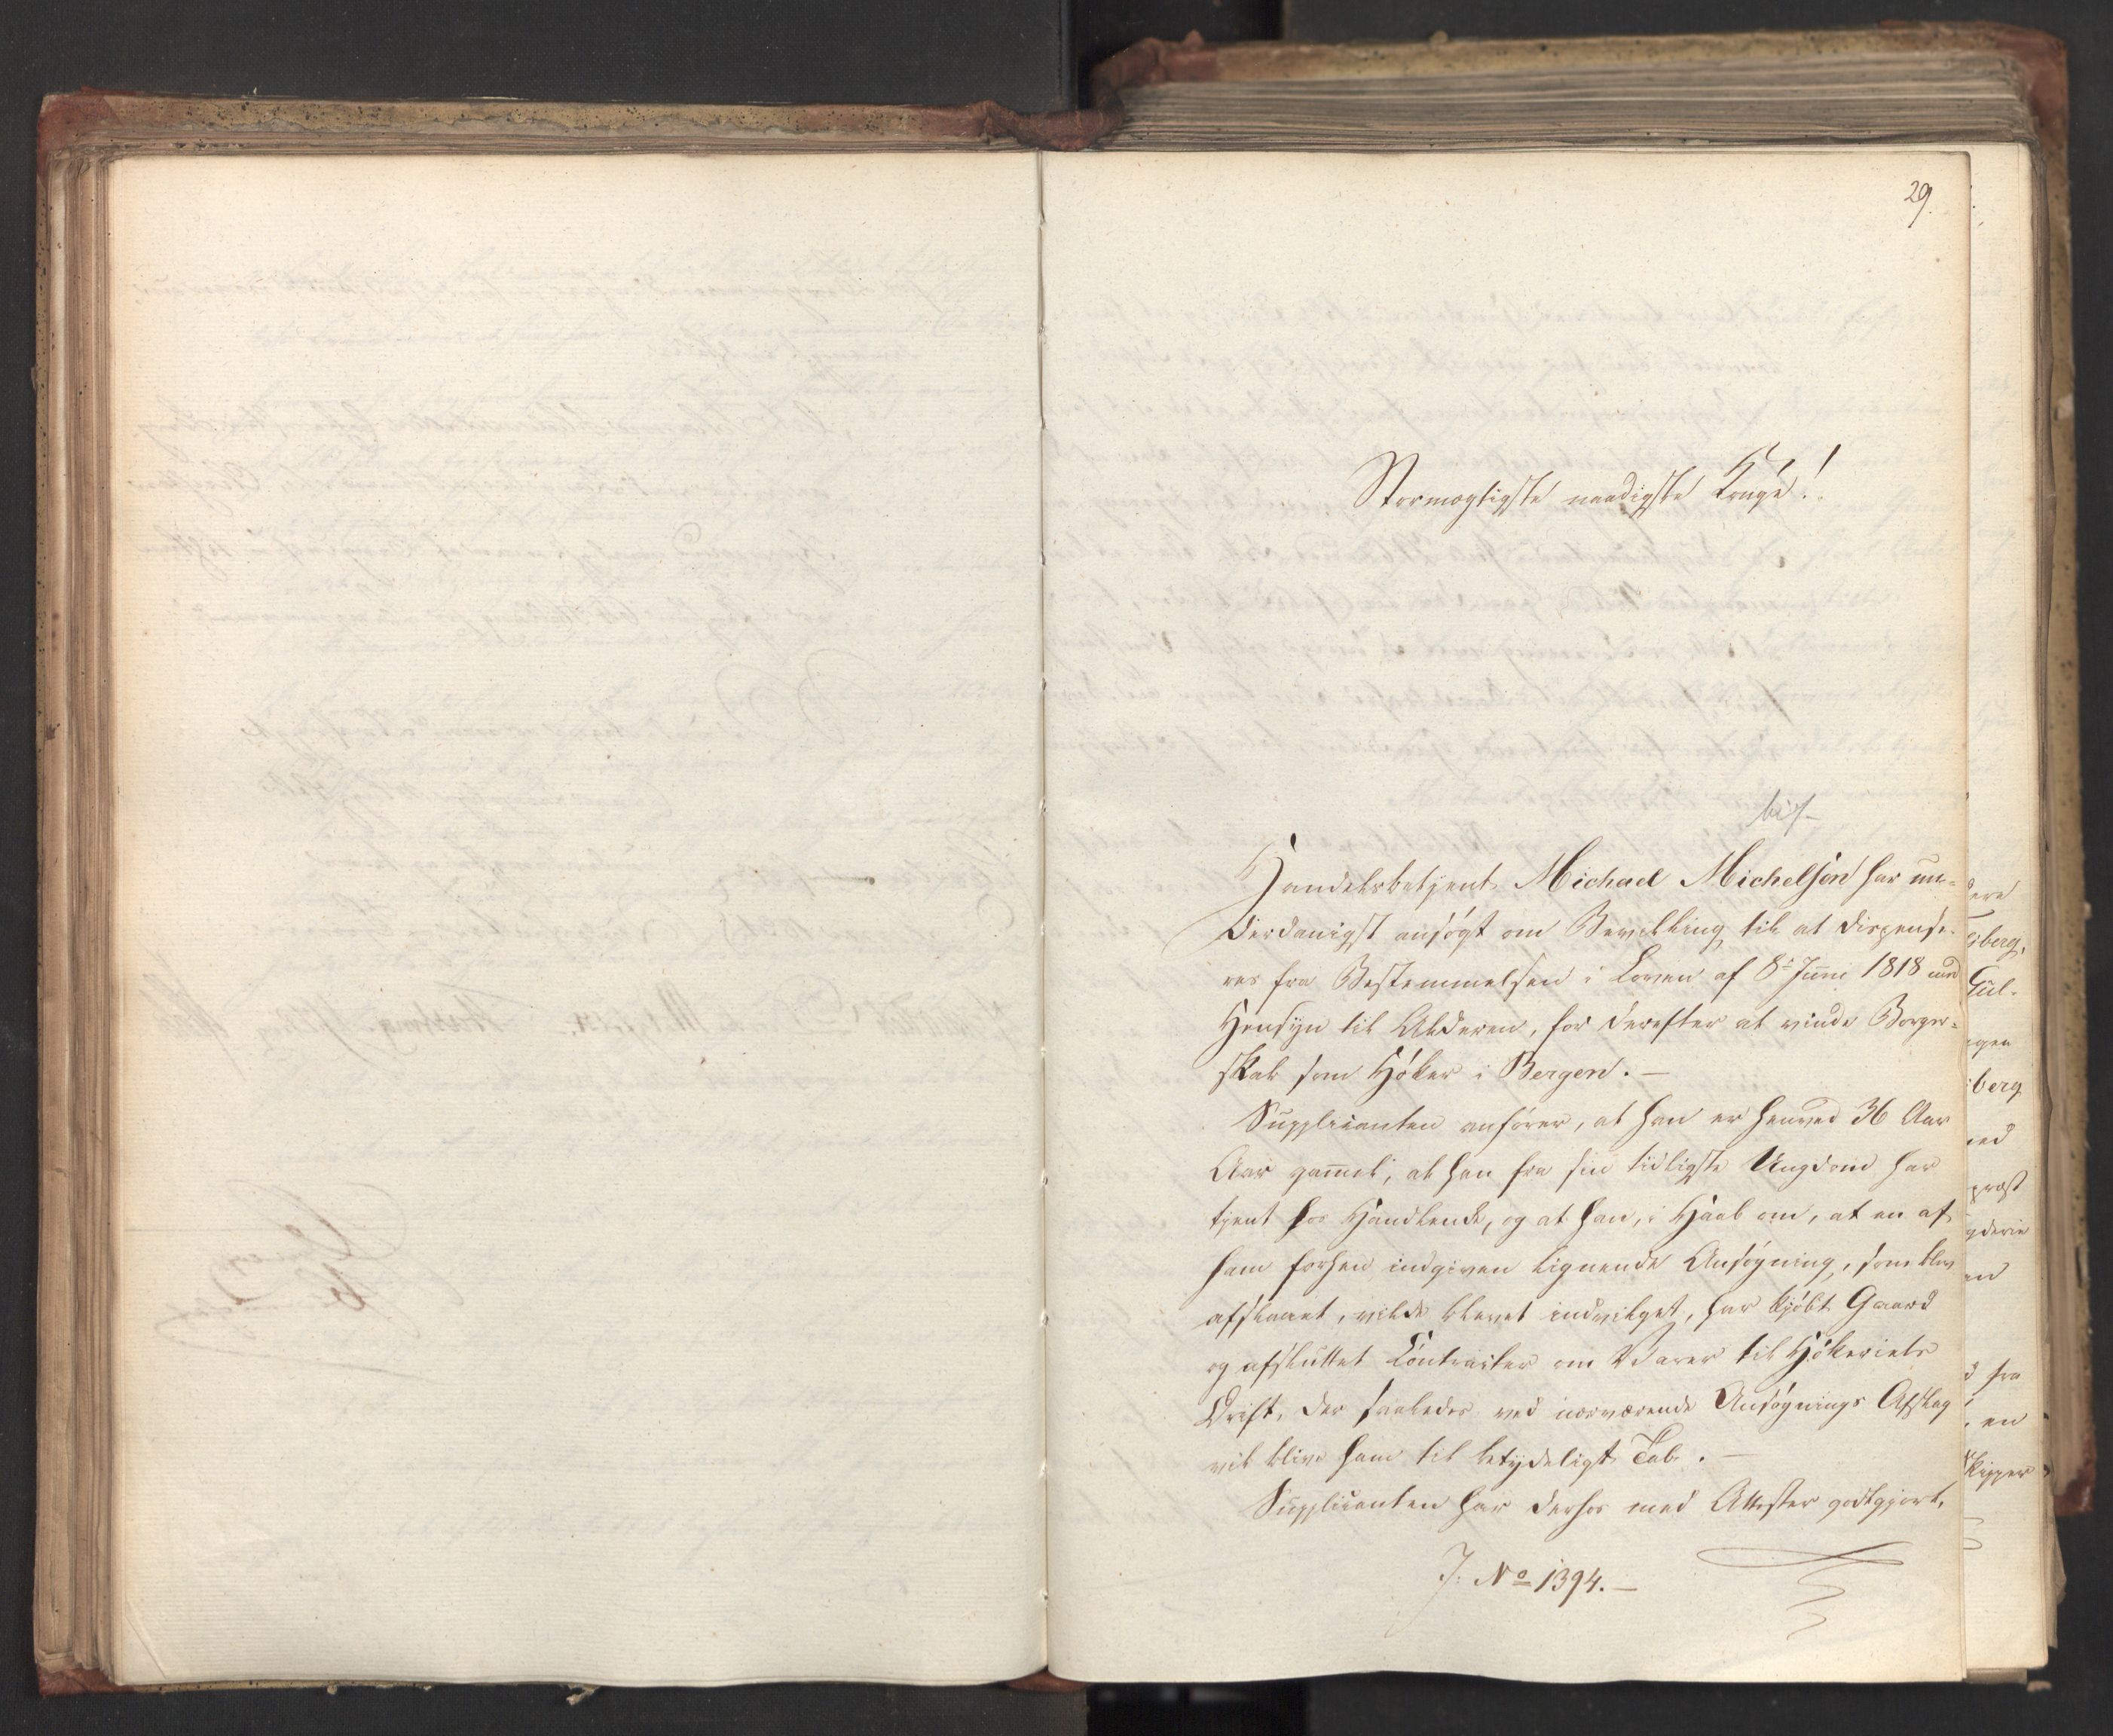 29.
Stormægtigste naadigste Konge!
Handelsbetjent Michael Michelsen har un-
derdanigst ansögt om Bevilling til at dispense-
res fra Bestemmelsen i Loven af 8de Juni 1818 med
Hensyn til Alderen, for derefter at vinde Borger-
skab som Höker i Bergen. —
Supplicanten anförer, at han er henved 36 Aar
Aar gammel, at han fra sin tidligste Ungdom har
tjent hos Handlende, og at han, i Haab om, at en af
ham forhen indgiven lignende Ansögning, som blev
afslaaet, vilde blevet indvilget, har kjöbt Gaard
og afsluttet Contracter om Varer til Hökeriets
Drift, der saaledes ved nærværende Ansögnings Afslag
vil blive ham til betydeligt Tab. —
Supplicanten har derhos med Attester godtgjort,
J: No 1394. —